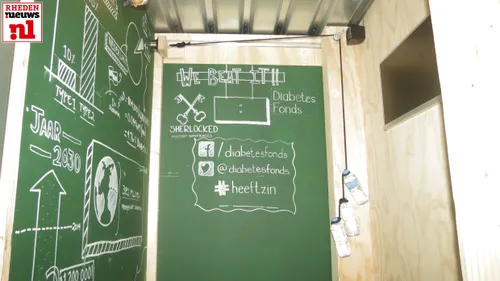 RHEDEN
nieuws
nl
10%
TYPE 1 TYPE 2
JAAR
2030
WE BEAT IT!!
SHERLOCKED
Diabetes
Fonds
/diabetesfonds
@diabetesfonds
#heeftzin